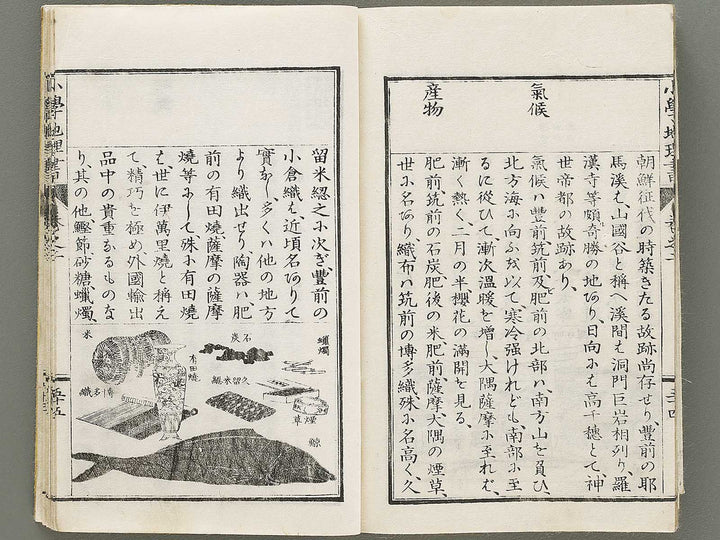 小學地理書
巻之二
二十四
朝鮮征伐の時築きたる故跡尚存せり、豊前の耶
馬溪ハ、山國谷と稱へ溪間ハ洞門巨岩相列り、羅
漢寺等頗奇勝の地なり、日向にハ高千穂とて、神
世帝都の故跡あり、
氣候
氣候ハ豊前筑前及肥前の北部ハ、南方山を負ひ、
北方海に向ふを以て寒冷强けれども、南部に至
るに從ひて漸次溫暖を增し、大隅薩摩に至れバ、
漸く熱く、二月の半櫻花の滿開を見る、
産物
肥前筑前の石炭肥後の米、肥前薩摩大隅の煙草、
世に名あり、織布ハ筑前の博多織殊に名高く、久
留米緦之に次ぎ豊前の
小倉織ハ、近頃名ありて
實なし、多くハ他の地方
より織出せり陶器ハ肥
前の有田燒薩摩の薩摩
燒等にして殊に有田燒
ハ世に伊萬里燒と稱え
て、精巧を極め外國輸出
品中の貴重なるものな
り、其の他、鰹節砂糖蠟燭、
蠟燭
石炭
米
有田燒
久留米緦
博多織
煙草
鯨
小學地理書
巻之二
二十五